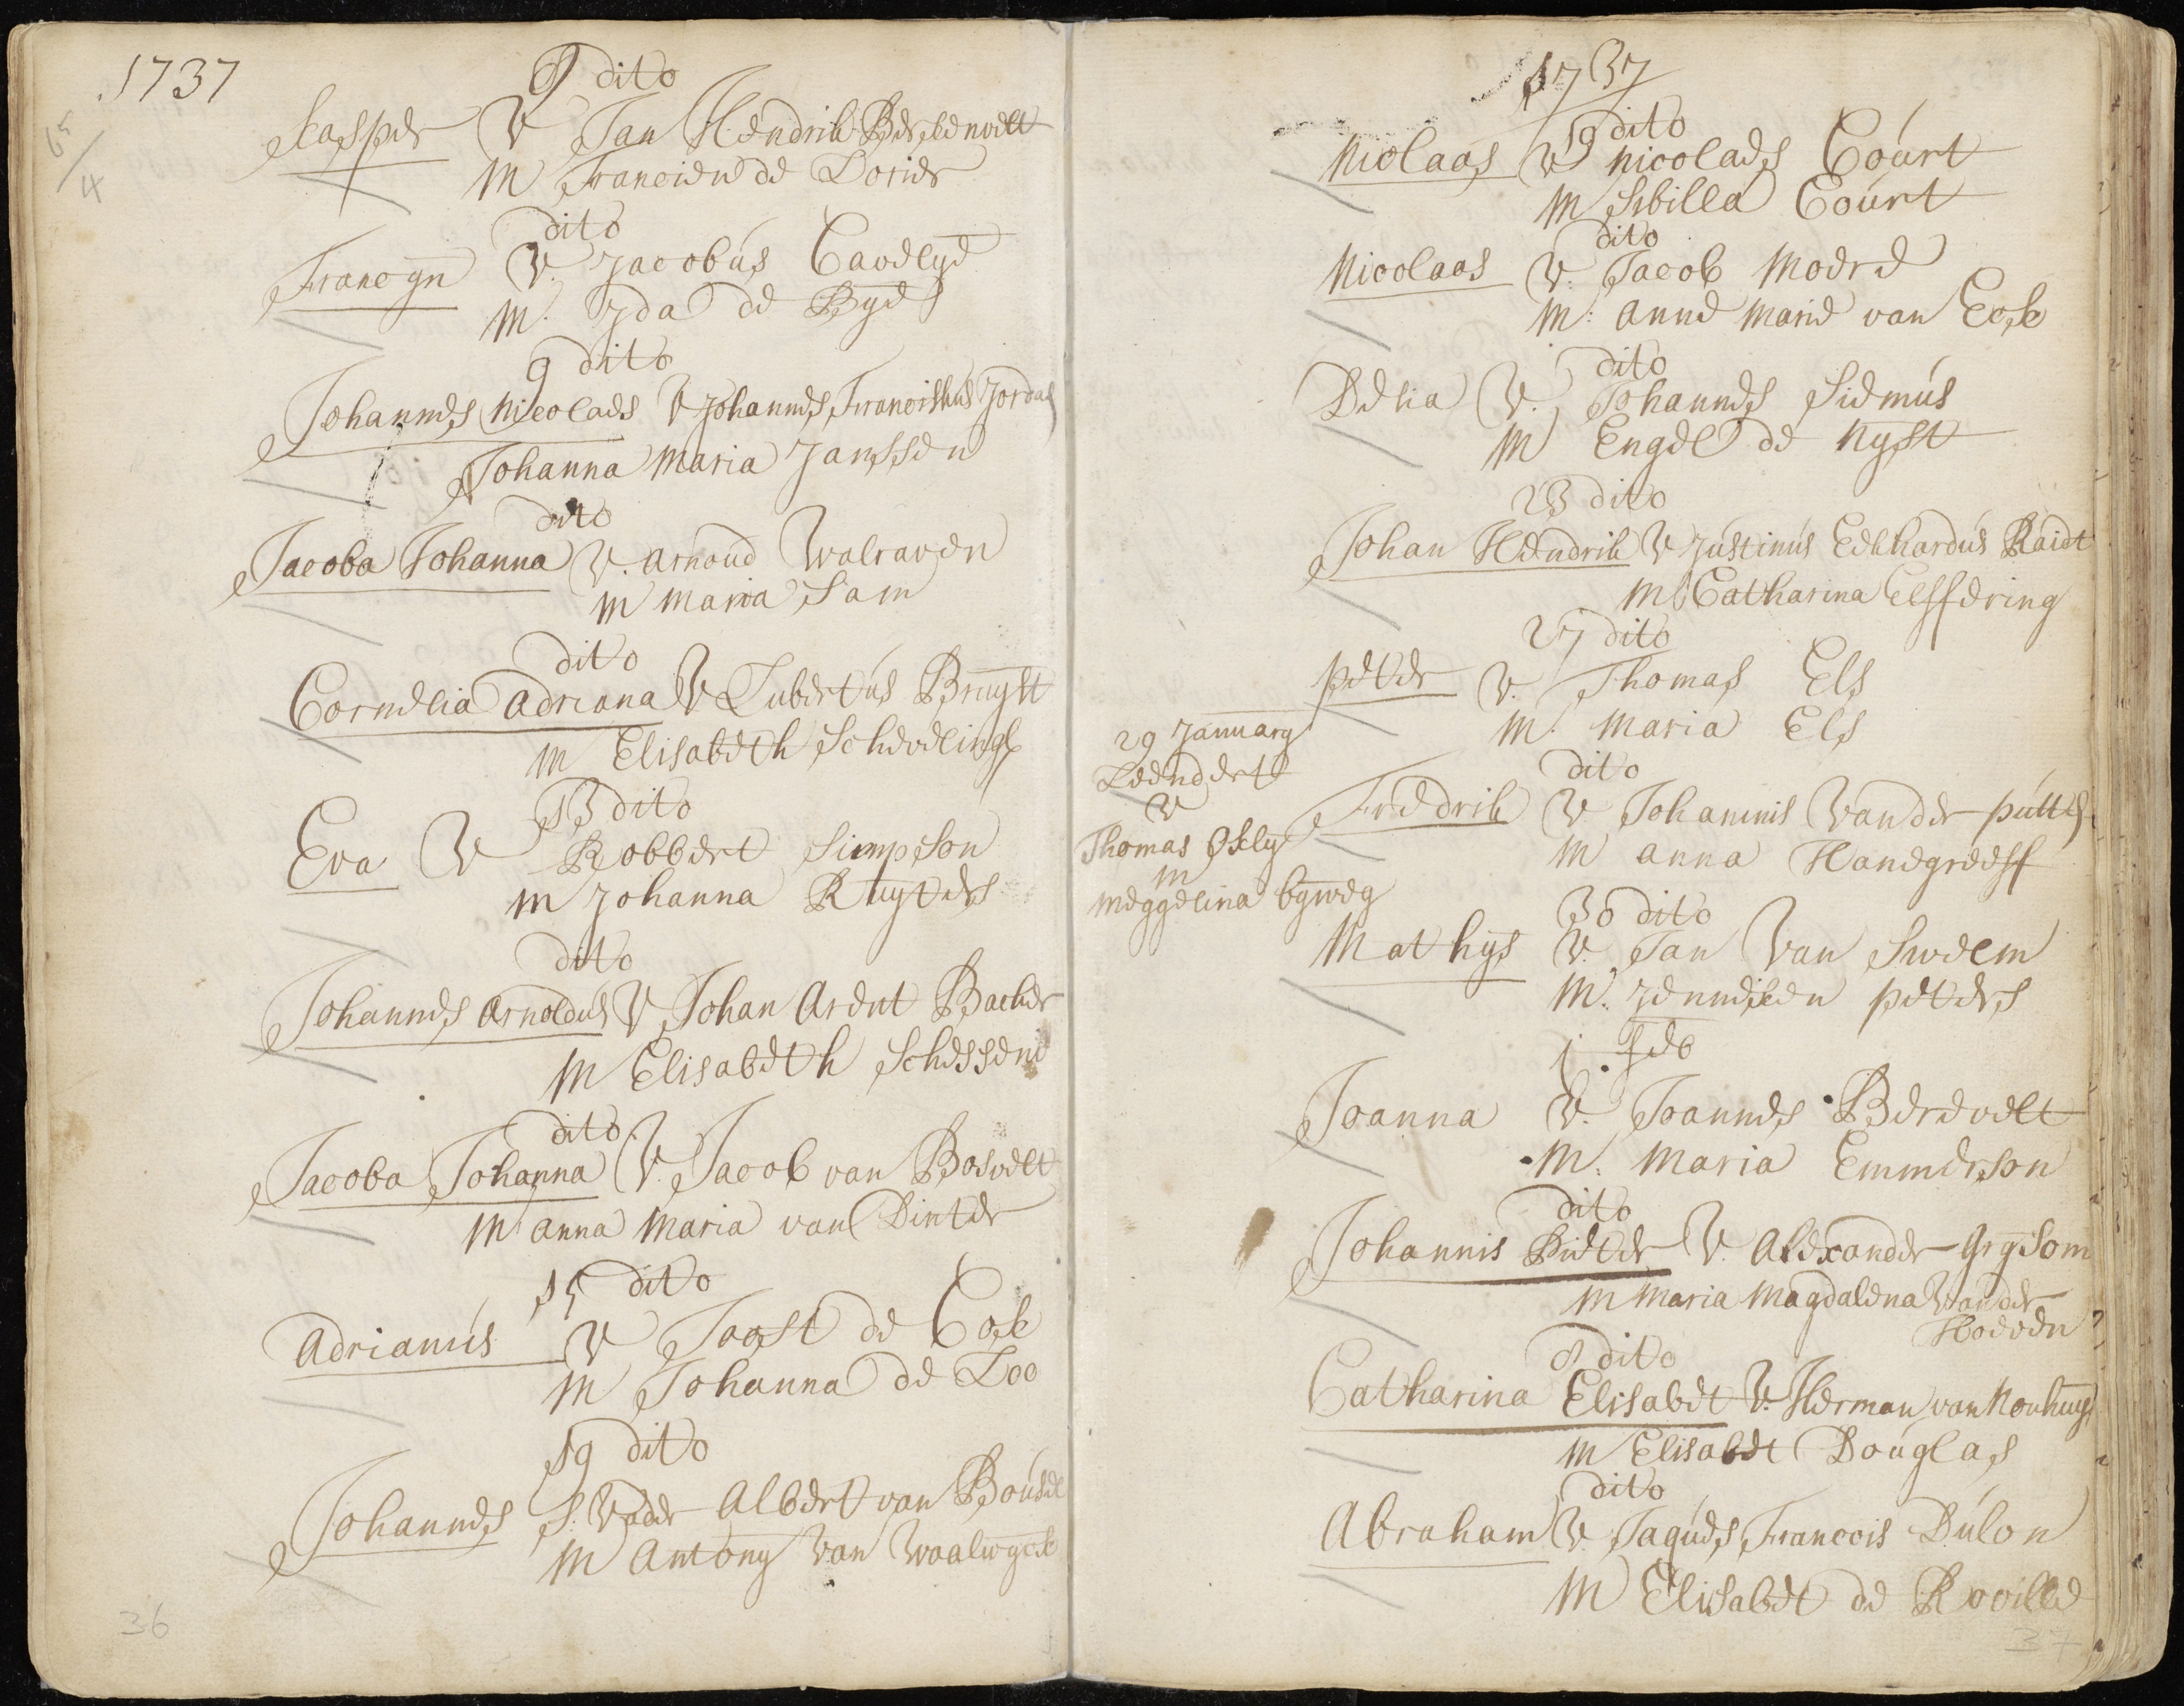 1737
65/4
9 dito
Casper V Jan Hendrik Berkenvelt
M Francien de Dorier
dito
Francyn V. Jacobus Cavelye
M. Ida de Bye
9 dito
Johannes Nicolaes V Johannes Franciskus Jordas
Johanna Maria Janssen
dito
Jacoba Johanna V. Arnoud Walraven
M Maria Sam
dito
Cornelia Adriana V Lubertus Bruyst
M Elisabeth Schevelingh
13 dito
Eva V Robbert Simpson
M Johanna Ruyters
dito
Johannes Arnoldus V Johan Arent Backer
M Elisabeth
dito
Jacoba Johanna V. Jacob van Bosvelt
M Anna Maria van Dinter
15 dito
Adrianus V Joost de Cok
M Johanna de Loo
19 dito
Johannes S. Vader Albert van Bousel
M Antony van Waalwyck
36
1737
19 dito
Niclaas V Nicolaes Court
M Sibilla Court
dito
Nicolaas V. Jacob Moere
M. Anne Marie van Eck
dito
Delia V. Johannes Siemus
M Engel de Nyst
23 dito
Johan Hendrik V Justinus Eckhardus Raidt
M Catharina Elssering
27 dito
Peter V. Thomas Els
M. Maria Els
29 January
Leendert
V
Thomas Oxly
M
Meggelina byweg
dito
Fredrik V Johannis Vander Putte
M Anna Handgreeff
30 dito
Mathys V. Jan Van Swelm
M. Jenneken Peters
1 Feb
Joanna V. Joannes Berevelt
M. Maria Emmerson
dito
Johannis Pieter V. Alexander Grysom
M Maria Magdalena Vander
Hoeven
8 dito
Catharina Elisabet V. Herman van Nouhuys
M Elisabet Douglas
dito
Abraham V. Jaques Francois Dulon
M Elisabet de Roville
37